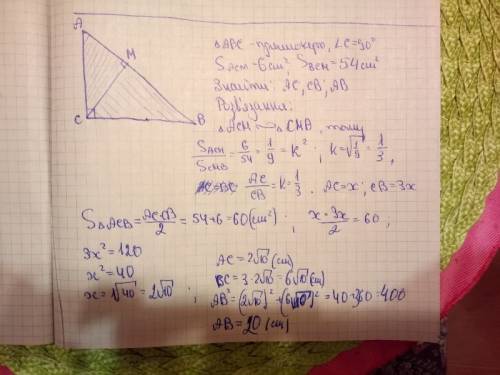 A
M
C
B
△ABC - прямокутн, ∠C=90°
S_ACM - 6 cm², S_BCM = 54 cm²
Знайти: AC, CB, AB
Розв'язання:
△ACM ∽ △CMB, тому
S_ACM/S_CMB = 6/54 = 1/9 = k²; k=√(1/9) = 1/3,
AC/CB = k = 1/3. AC=x; CB=3x
S△ACB = AC·CB/2 = 54+6=60 (cm²); x·3x/2 = 60,
3x²=120
x²=40
x=√40 = 2√10;
AC=2√10 (cm)
BC=3·2√10=6√10 (cm)
AB²=(2√10)²+(6√10)²=40+360=400
AB=20 (cm)